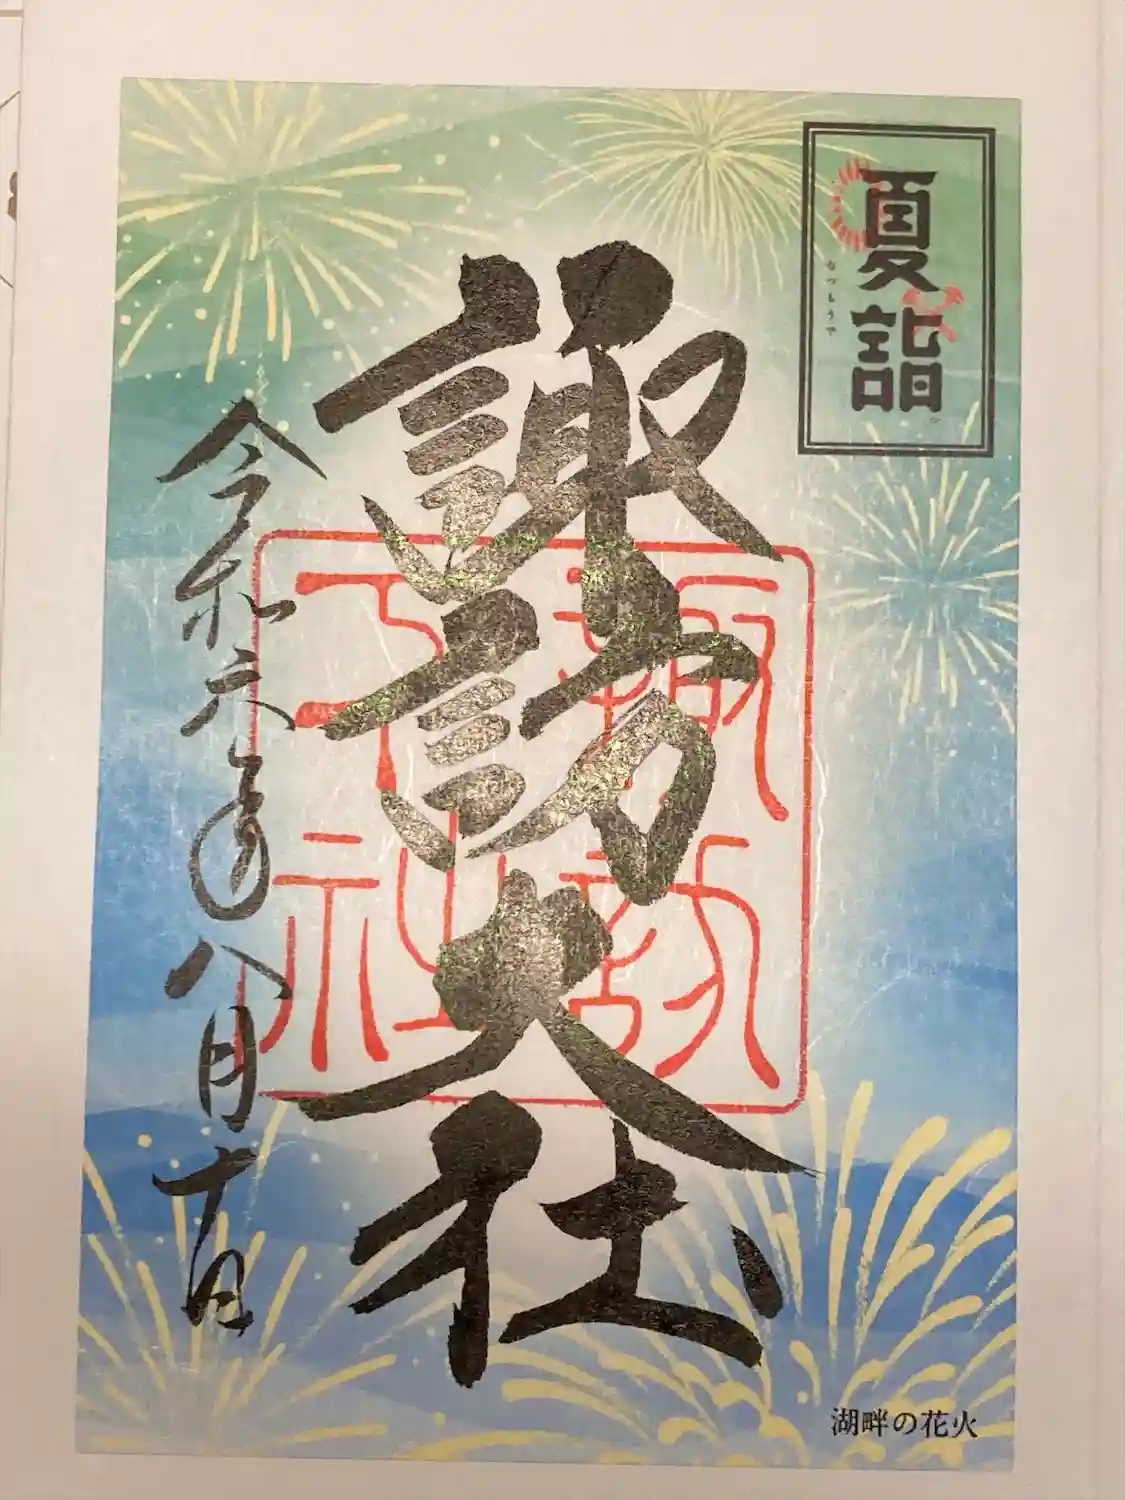 夏詣
なつもうで
諏訪大社
諏訪
大社
令和六年八月十日
湖畔の花火